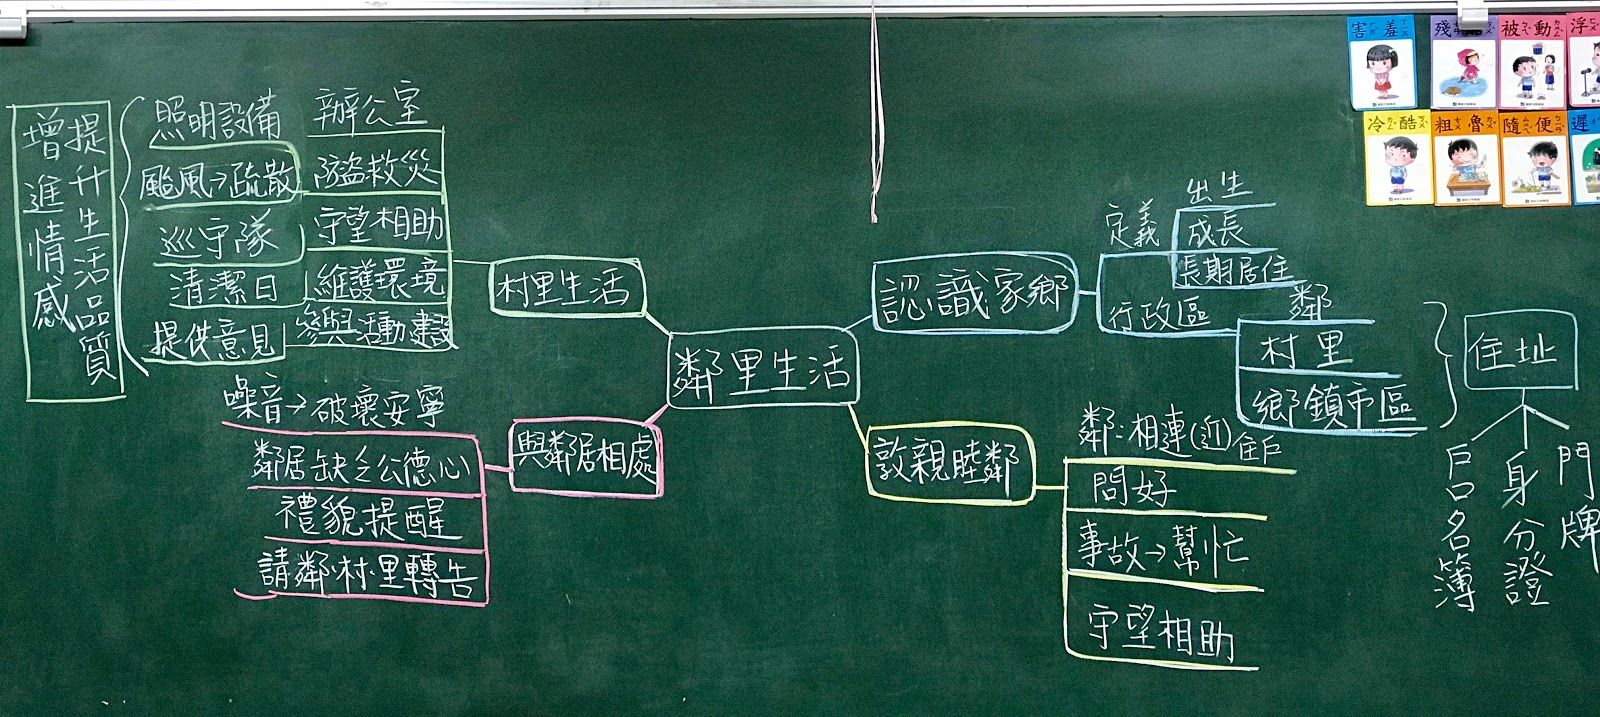 鄰里生活
認識家鄉
定義
出生
成長
長期居住
行政區
鄰
村里
鄉鎮市區
住址
戶口名簿
身分證
門牌
敦親睦鄰
鄰：相連(近)住戶
問好
事故→幫忙
守望相助
村里生活
辦公室
防盜救災
守望相助
維護環境
參與活動建設
照明設備
颱風→疏散
巡守隊
清潔日
提供意見
提升生活品質
增進情感
與鄰居相處
噪音→破壞安寧
鄰居缺乏公德心
禮貌提醒
請鄰.村.里轉告
害羞
殘
被動
浮
冷酷
粗魯
隨便
遲